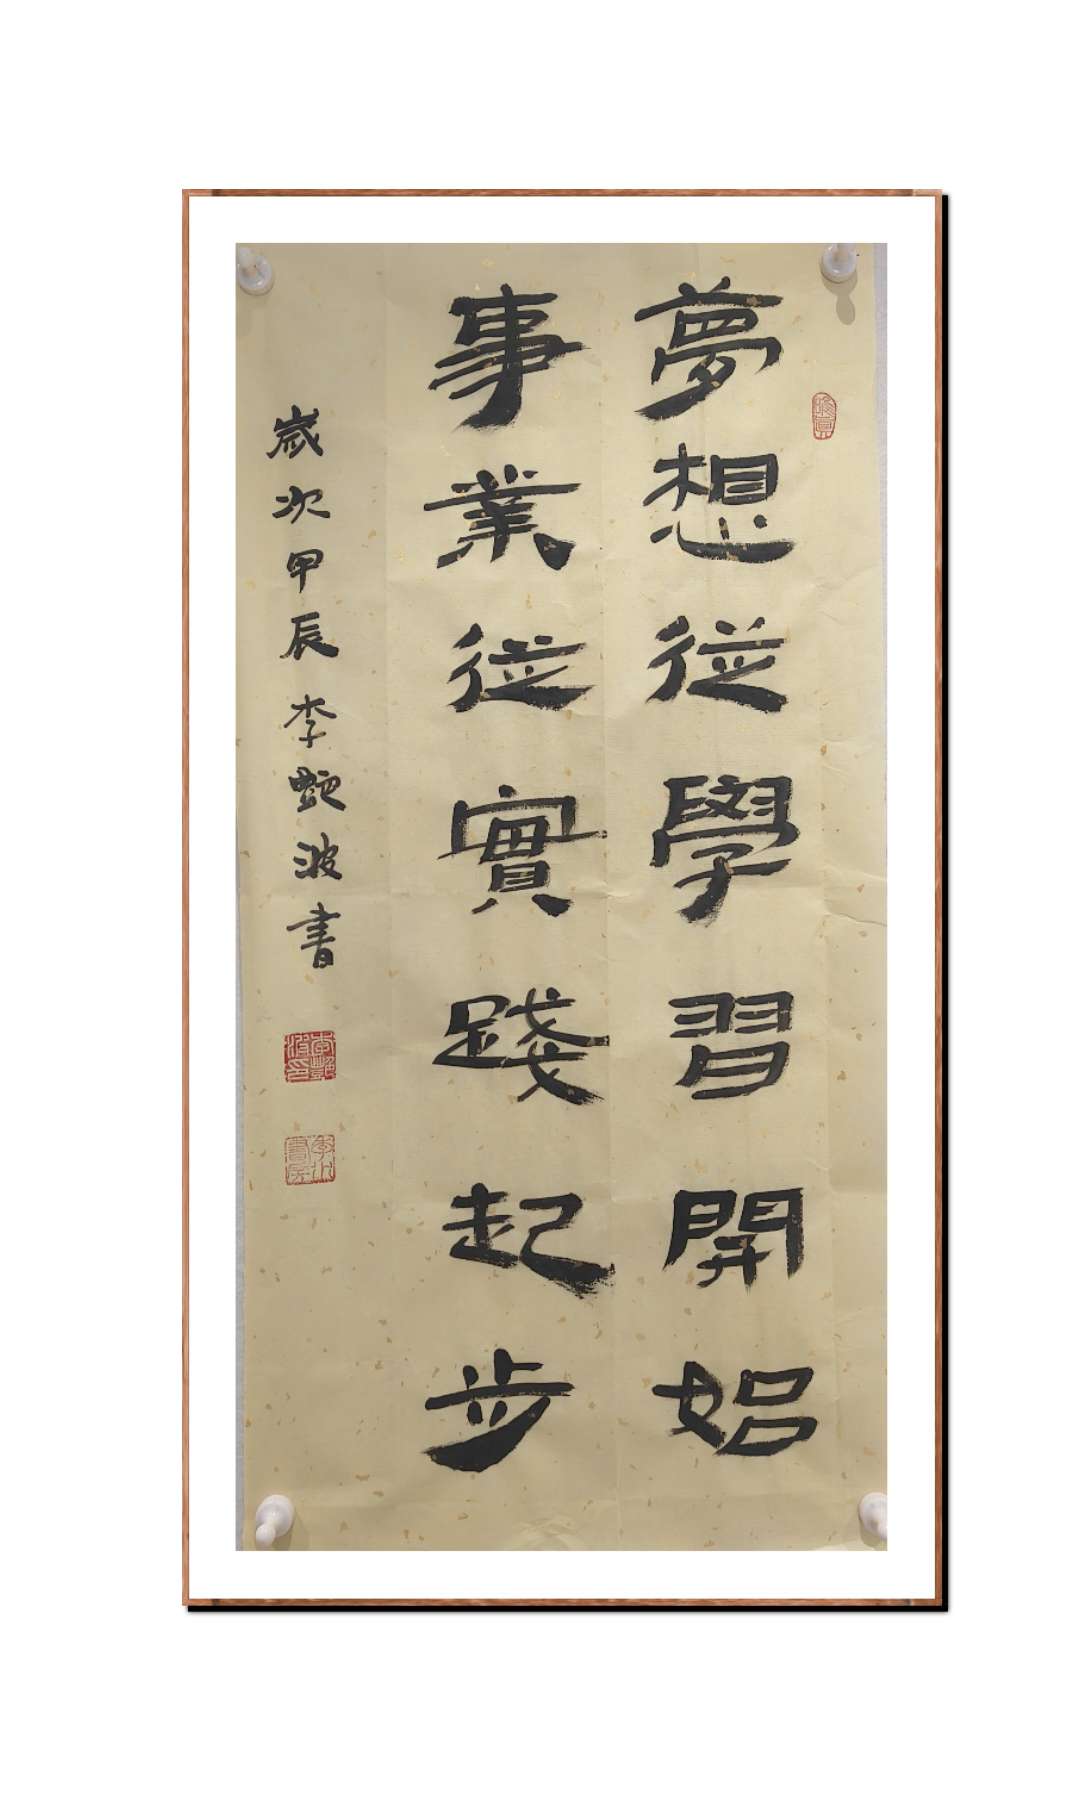 夢想從學習開始
事業從實踐起步
歲次甲辰李艷波書
李艷波印